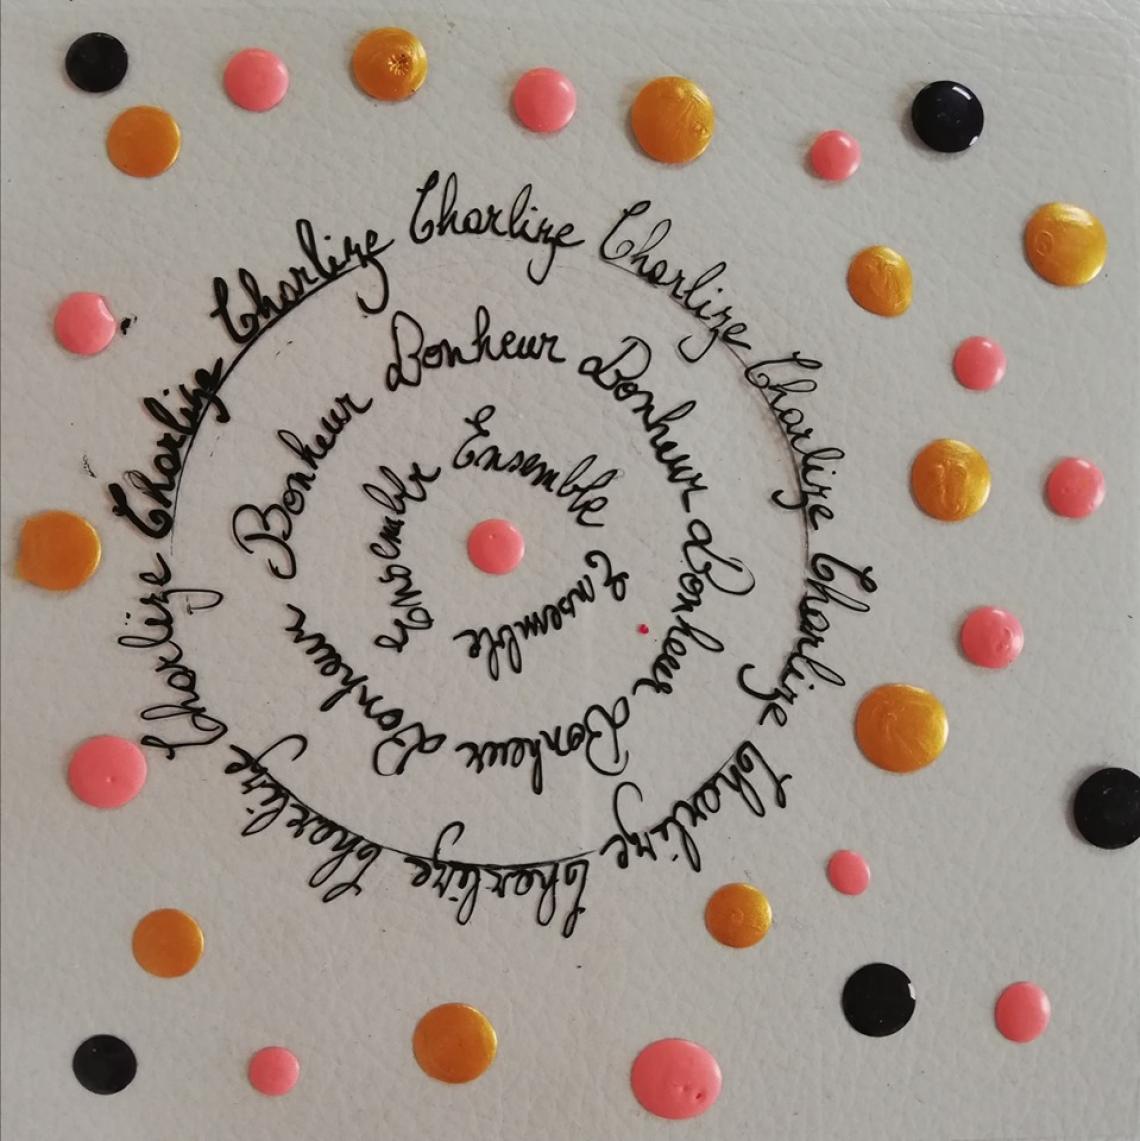 Charlize Charlize Charlize Charlize Charlize Charlize Charlize Charlize Charlize Charlize
Bonheur Bonheur Bonheur Bonheur Bonheur Bonheur
Ensemble Ensemble Ensemble